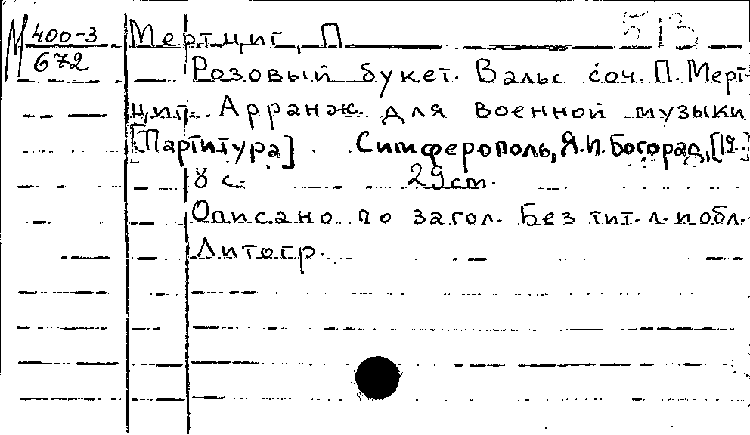 М 400-3
672
Мертциг, П
513
Розовый букет. Вальс соч. П. Мерт-
циг. Арранж для военной музыки
[Партитура]. Симферополь, Я.И. Богорад, [19..]
8 с. 29 cm.
Описано по загол. Без тит. л. и обл.
Литогр.